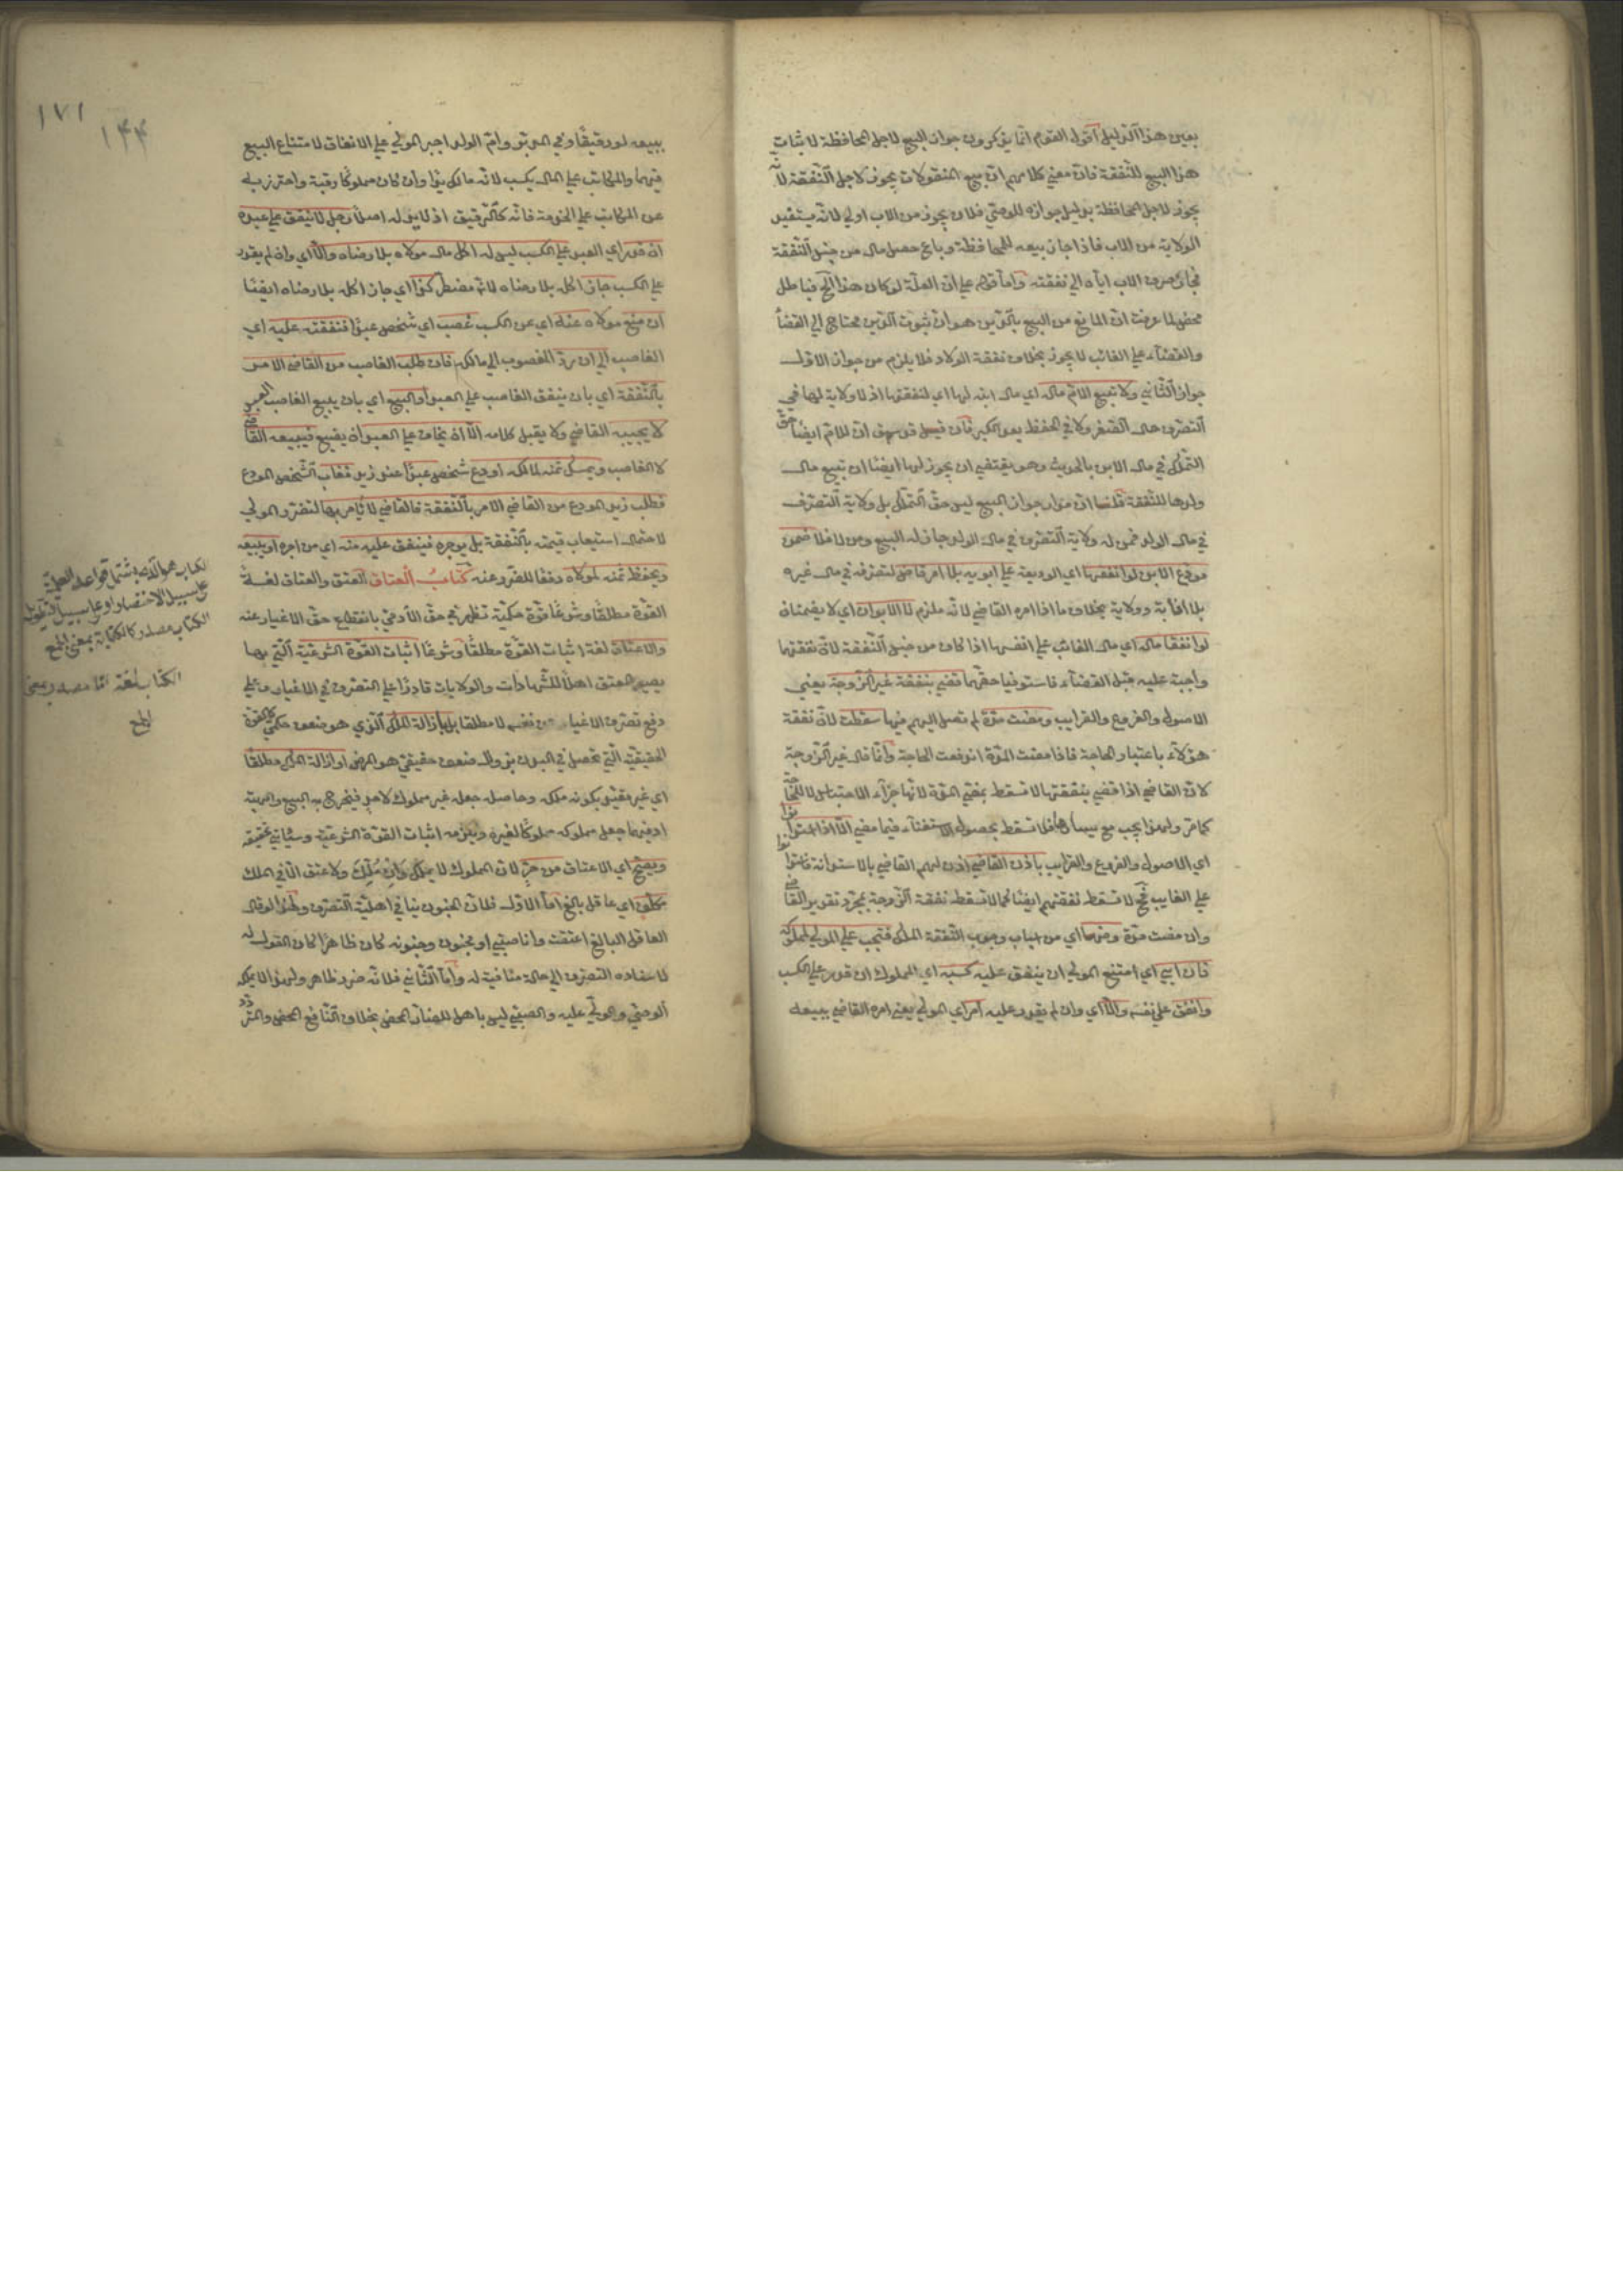 بعين هذا الدليل اقول القوم انما يذكرون جواز البيع لاجل المحافظة لا ثبات
هذا البيع للنفقة فان معنى كلامهم ان بيع المنقولات يجوز لاجل النفقة لانه
يجوز لاجل المحافظة بدليل جوازه للوصي فلان يجوز من الاب اولى لانه يستفيد
الولاية من الاب فاذا جاز بيعه للمحافظة وباع حصل مال من جنس النفقة
فجاز صرف الاب اياه الى نفقته واما قولهم على ان العلة لو كان هذا الخ فباطل
محض لما عرفت ان المانع من البيع بالدين هو ان ثبوت الدين محتاج الى القضا
والقضاء على الغائب لا يجوز بخلاف نفقة الولاد فلا يلزم من جواز الاول
جواز الثاني ولا تبيع الام ماله اي مال ابنه لها اي لنفقتها اذ لا ولاية لها في
التصرف حال الصغر ولا في الحفظ بعد الكبر فان قيل قد سبق ان للام ايضا حق
التملك في مال الابن بالحديث وهو يقتضي ان يجوز لها ايضا ان تبيع مال
ولدها للنفقة قلنا ان مدار جواز البيع ليس حق التملك بل ولاية التصرف
في مال الولد فمن له ولاية التصرف في مال الولد جاز له البيع ومن لا فلا ضمن
مودع الابن لو انفقها اي الوديعة على ابويه بلا امر قاض لتصرفه في مال غيره
بلا انابة وولاية بخلاف ما اذا امره القاضي لانه ملزم لا الابوان اي لا يضمنان
لو انفقا ماله اي مال الغائب على انفسهما اذا كان من جنس النفقة لان نفقتهما
واجبة عليه قبل القضاء فاستوفيا حقهما قضى بنفقة غير الزوجة يعني
الاصول والفروع والقرايب ومضت مدة لم تصل اليهم فيها سقطت لان نفقة
هؤلاء باعتبار الحاجة فاذا مضت المدة اندفعت الحاجة وانما قال غير الزوجة
لان القاضي اذا قضى بنفقتها لا تسقط بمضي المدة لانها جزاء الاحتباس لا للحاجة
كما مر ولهذا يجب مع يسارها فلا تسقط بحصول الاستغناء فيما مضى الا اذا استدانوا
اي الاصول والفروع والقرايب باذن القاضي اذن لهم القاضي بالاستدانة فاستدانوا
على الغايب فح لا تسقط نفقتهم ايضا كما لا تسقط نفقة الزوجة بمجرد تقرير القاضي
وان مضت مدة ومنها اي من اسباب وجوب النفقة الملك فتجب على المولى لمملوكه
فان ابى اي امتنع المولى ان ينفق عليه كسبه اي المملوك ان قدر على الكسب
وانفق على نفسه والا اي وان لم يقدر عليه امر اي المولى يعني امره القاضي ببيعه
١٧١
١٤٤
ببيعه لو رقيقا وفي المدبر وام الولد اجبر المولى على الانفاق لامتناع البيع
فيهما والمكاتب على المال يكسب لانه مالك يدا وان كان مملوكا رقبة واحترز به
عن المكاتب على الخدمة فانه كالرقيق اذ لا يد له اصلا رجل لا ينفق على عبده
ان قدر اي العبد على الكسب ليس له اكل مال مولاه بلا رضاه والا اي وان لم يقدر
على الكسب جاز اكله بلا رضاه لانه مضطر كذا اي جاز اكله بلا رضاه ايضا
ان منع مولاه عنه اي عن الكسب غصب اي شخص عبدا فنفقته عليه اي
الغاصب الى ان يرد المغصوب الى مالكه فان طلب الغاصب من القاضي الامر
بالنفقة اي بان ينفق الغاصب على العبد او البيع اي بان يبيع الغاصب العبد
لا يجيبه القاضي ولا يقبل كلامه الا ان يخاف على العبد ان يضيع فيبيعه القاضي
لا الغاصب ويمسك ثمنه لمالكه اودع شخص عبدا عند زيد فغاب الشخص المودع
فطلب زيد المودع من القاضي الامر بالنفقة فالقاضي لا يأمر بها لتضرر المولى
لاحتمال استيعاب قيمته بالنفقة بل يوجره فينفق عليه منه اي من اجره او يبيعه
ويحفظ ثمنه لمولاه دفعا للضرر عنه كتاب العتاق العتق والعتاق لغة
القوة مطلقا وشرعا قوة حكمية تظهر في حق الآدمي بانقطاع حق الاغيار عنه
والاعتاق لغة اثبات القوة مطلقا وشرعا اثبات القوة الشرعية التي بها
يصير المعتق اهلا للشهادات والولايات قادرا على التصرف في الاغيار وعلى
دفع تصرف الاغيار عن نفسه لا مطلقا بل بازالة الملك الذي هو ضعف حكمي كالقوة
الحقيقية التي تحصل في البدن بزوال ضعف حقيقي هو المرض او ازالة الملك مطلقا
اي غير مقيد بكونه ملكه وحاصله جعله غير مملوك لاحد فيخرج به البيع والهبة
اذ فيهما جعل مملوكه مملوكا لغيره ويلزمه اثبات القوة الشرعية وسيأتي تحقيقه
ويصح اي الاعتاق من حر لان المملوك لا يملك وان ملك ولا عتق الا في الملك
مكلف اي عاقل بالغ اما الاول فلان الجنون ينافي اهلية التصرف ولهذا لو قال
العاقل البالغ اعتقت وانا صبي او مجنون وجنونه كان ظاهرا كان القول له
لاسناده التصرف الى حالة منافية له واما الثاني فلانه ضرر ظاهر ولهذا لا يملكه
الوصي والولي عليه والصبي ليس باهل للضار المحض بخلاف النافع المحض والمتردد
الكتاب هو الذي يشتمل قواعد العلمية
على سبيل الاختصار او على سبيل التطويل
الكتاب مصدر كالكتابة بمعنى الجمع
الكتاب لغة اما مصدر بمعنى
الجمع